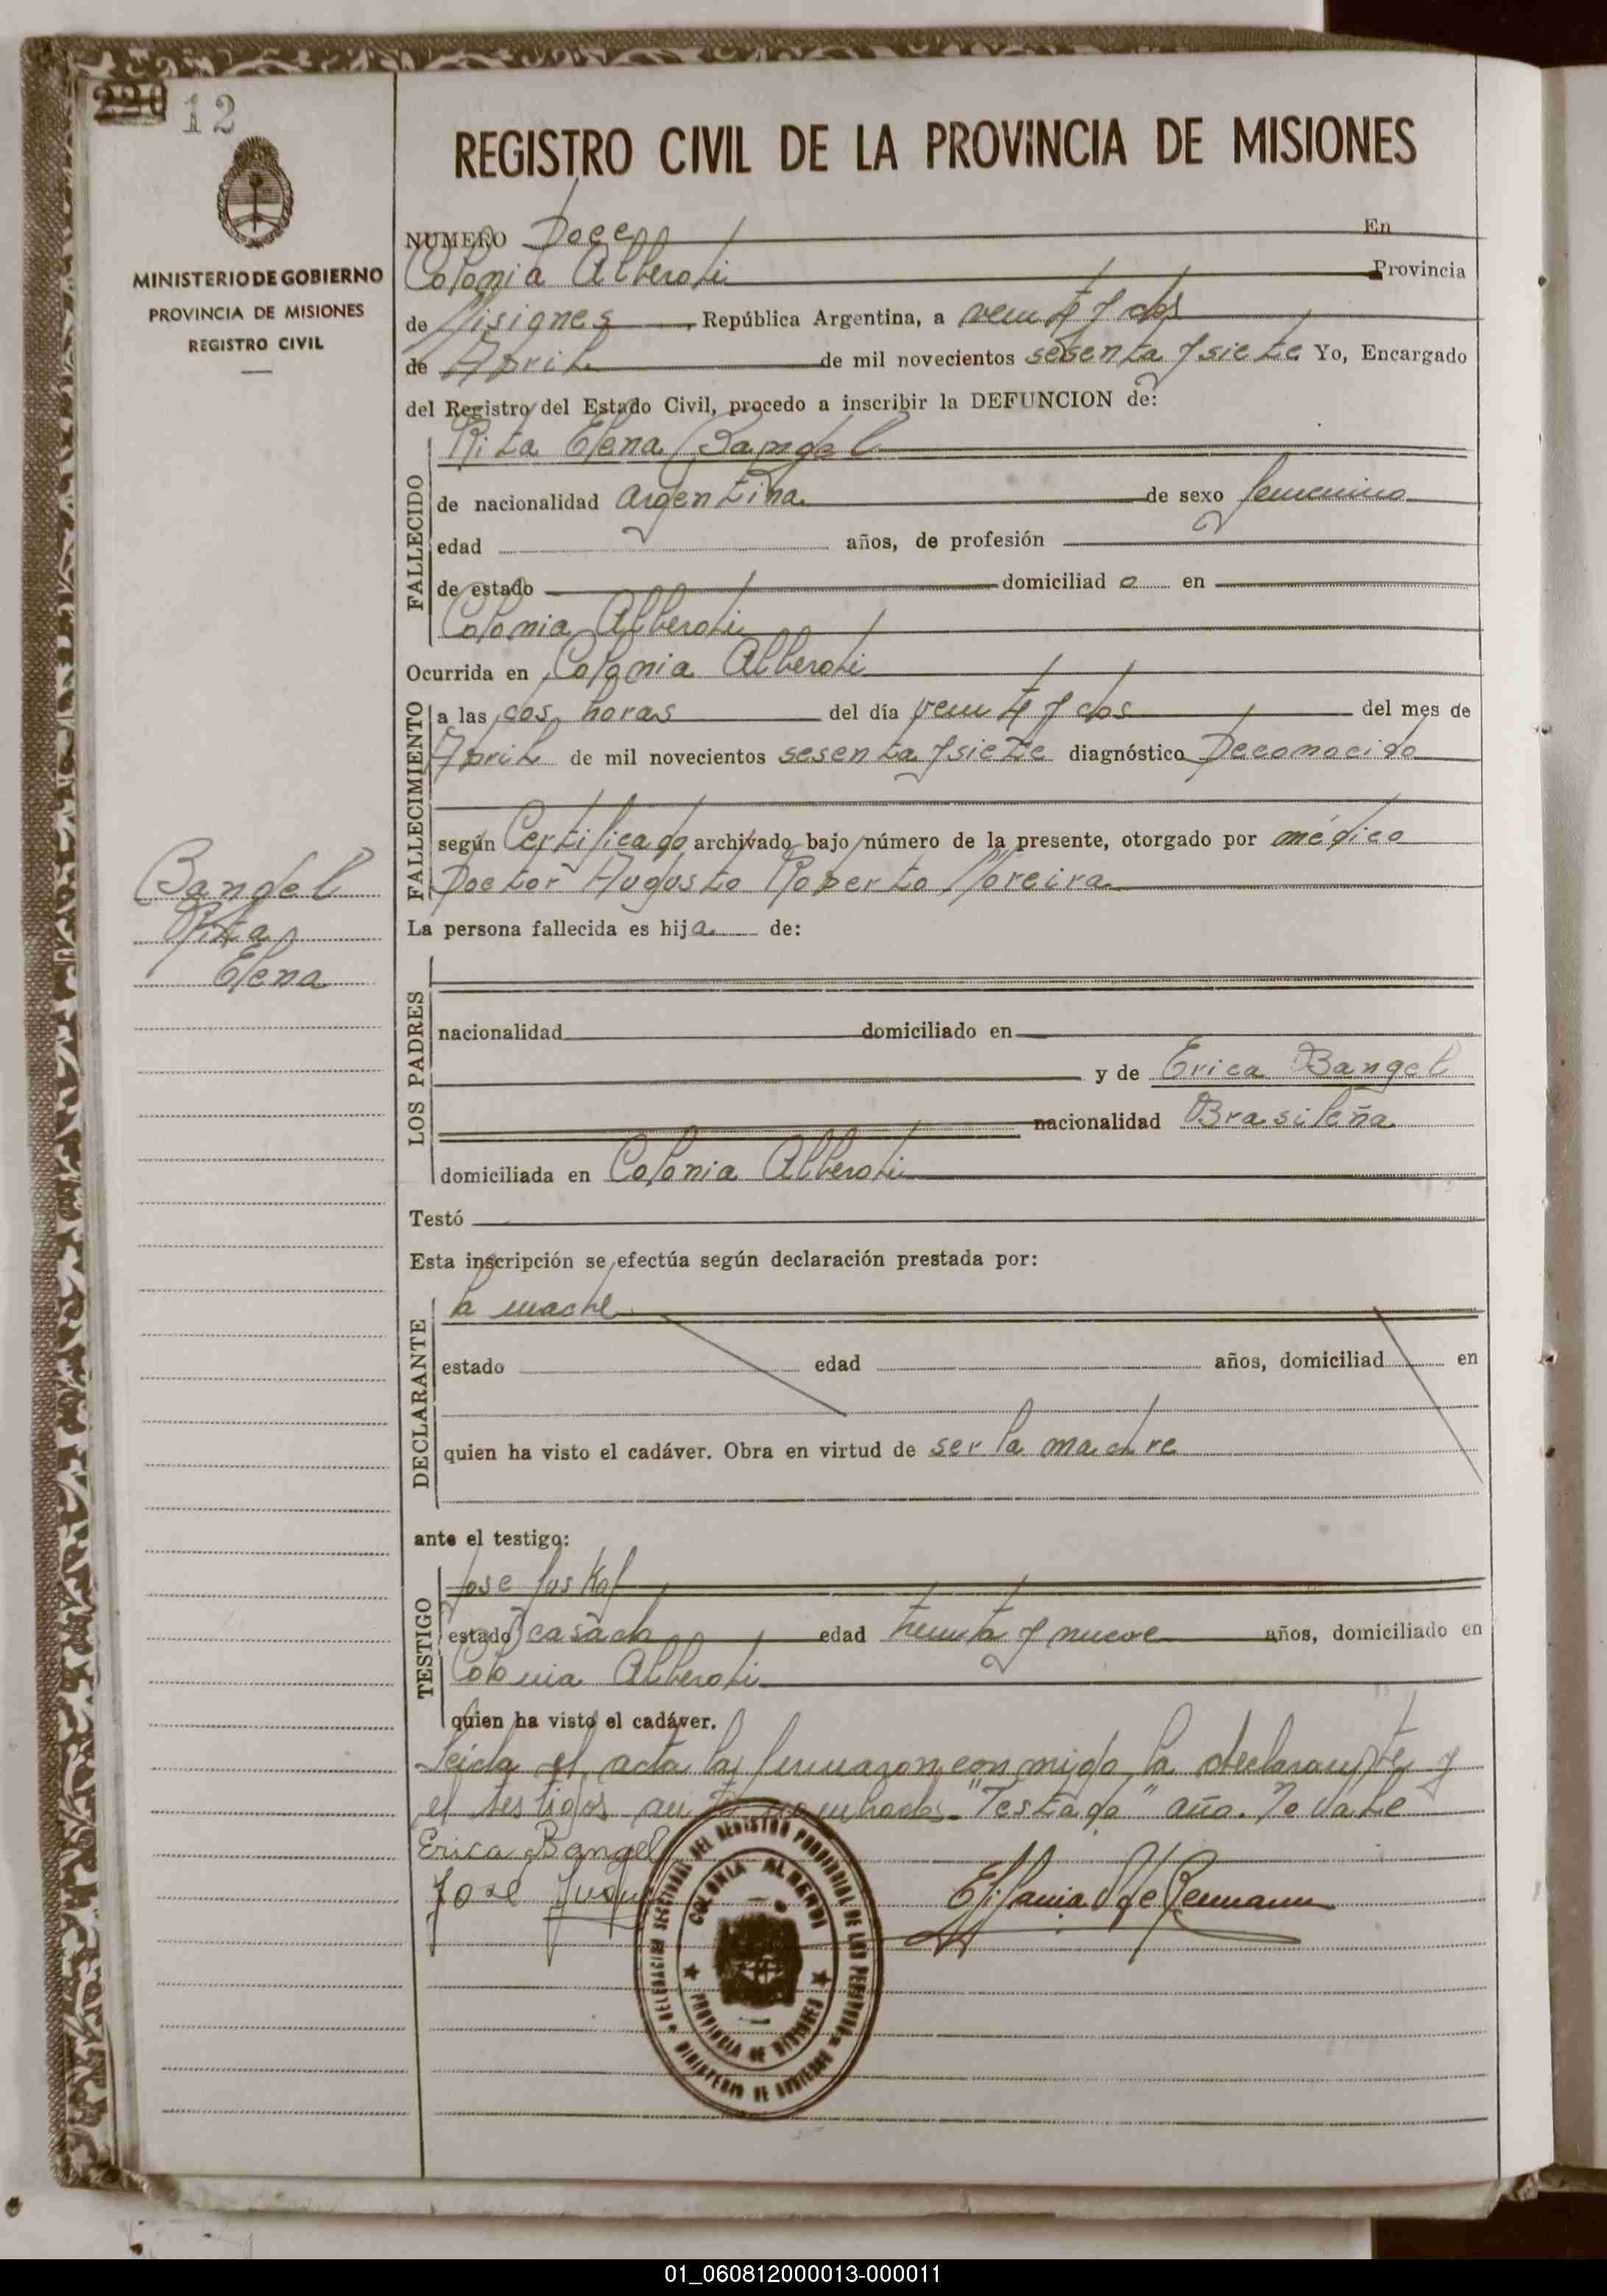 220 12
REGISTRO CIVIL DE LA PROVINCIA DE MISIONES
MINISTERIO DE GOBIERNO
PROVINCIA DE MISIONES
REGISTRO CIVIL
NUMERO Doce En
Colonia Alberdi Provincia
de Misiones, República Argentina, a veinte y dos
de Abril de mil novecientos sesenta y siete Yo, Encargado
del Registro del Estado Civil, procedo a inscribir la DEFUNCION de:
FALLECIDO
Rita Elena Bangel
de nacionalidad argentina de sexo femenino
edad años, de profesión
de estado domiciliad a en
Colonia Alberdi
Ocurrida en Colonia Alberdi
FALLECIMIENTO
a las dos horas del día veinte y dos del mes de
Abril de mil novecientos sesenta y siete diagnóstico Deconocido
según Certificado archivado bajo número de la presente, otorgado por médico
Doctor Augusto Roberto Moreira
Bangel
Rita
Elena
La persona fallecida es hija de:
LOS PADRES
nacionalidad domiciliado en
y de Erica Bangel
nacionalidad Brasileña
domiciliada en Colonia Alberdi
Testó
Esta inscripción se efectúa según declaración prestada por:
DECLARANTE
la madre
estado edad años, domiciliad en
quien ha visto el cadáver. Obra en virtud de ser la madre
ante el testigo:
TESTIGO
Jose
estado casado edad treinta y nueve años, domiciliado en
Colonia Alberdi
quien ha visto el cadáver.
Leida el acta la firmaron conmigo la declarante y
el testigos ante nombrados. "Testado" año. No vale
Erica Bangel
José
DELEGACION SECCIONAL DEL REGISTRO PROVINCIAL DE LAS PERSONAS
COLONIA ALBERDI
PROVINCIA DE MISIONES
MINISTERIO DE GOBIERNO
01_060812000013-000011